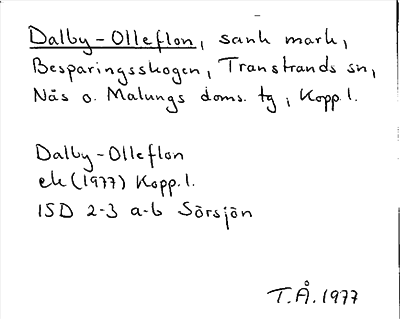 Dalby-Olleflon, sank mark,
Besparingsskogen, Transtrands sn,
Näs o. Malungs doms. tg, Kopp. l.
Dalby-Olleflon
ek (1977) Kopp. l.
15D 2-3 a-b Sörsjön
T.Å. 1977